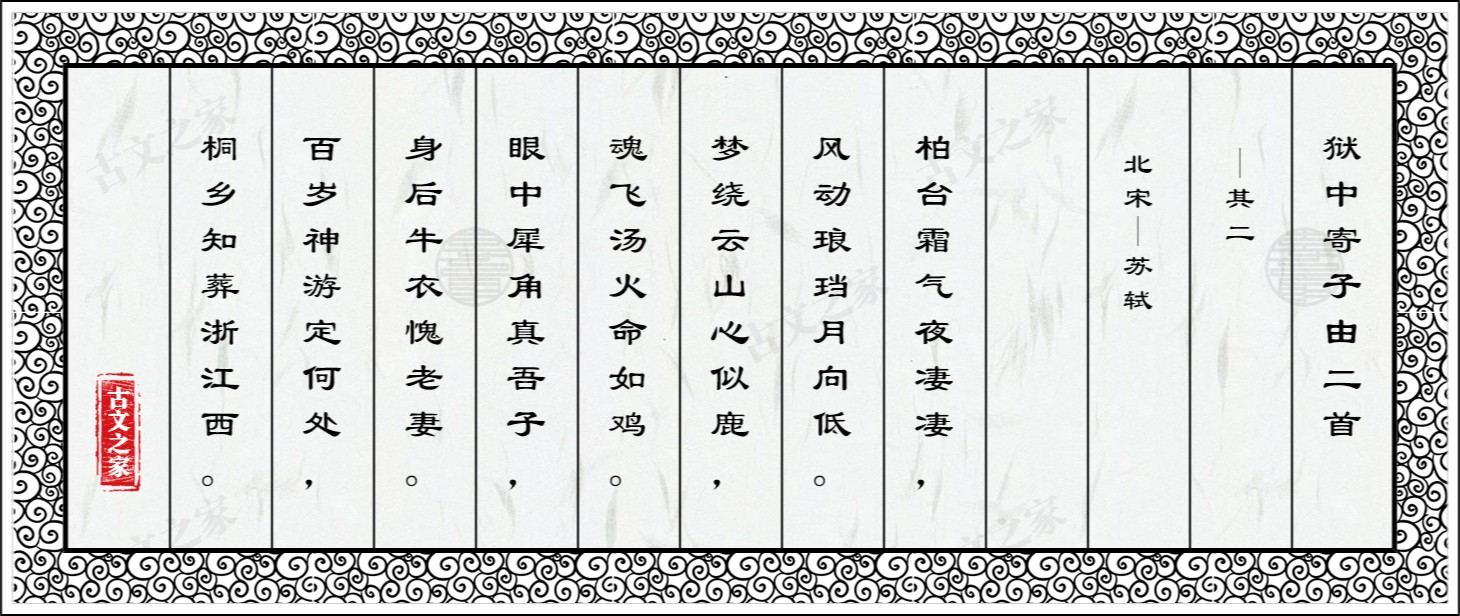 狱中寄子由二首
—其二
北宋—苏轼
柏台霜气夜凄凄，
风动琅珰月向低。
梦绕云山心似鹿，
魂飞汤火命如鸡。
眼中犀角真吾子，
身后牛衣愧老妻。
百岁神游定何处，
桐乡知葬浙江西。
古文之家